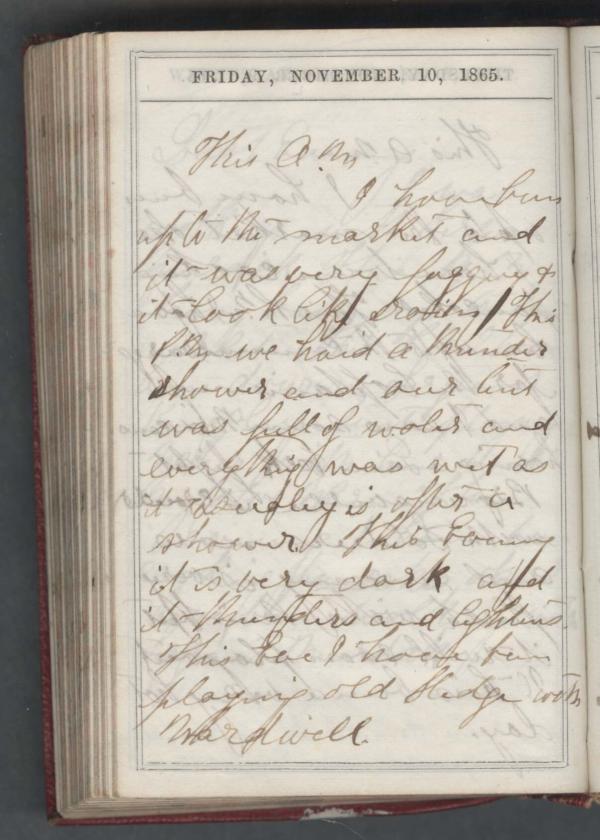 FRIDAY, NOVEMBER 10, 1865.
This A.M.
I have ben
up to the market and
it was very foggy &
it look like This
P.M. we had a thunder
shower and our tent
was full of water and
everything was wet as
it is after a
shower. This Evening
it is very dark and
it thunders and lightens.
This Eve I have ben
playing old sledge with
Wardwell.